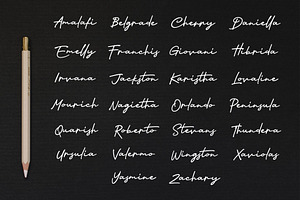 Amalafi Belgrade Cherry Daniella
Emelly Franchis Giovani Hibrida
Irvana Jackston Karistha Lovaline
Mourich Nagietta Orlando Peninsula
Quarish Roberto Stevans Thundera
Ursulia Valermo Wingston Xaviolas
Yasmine Zachary